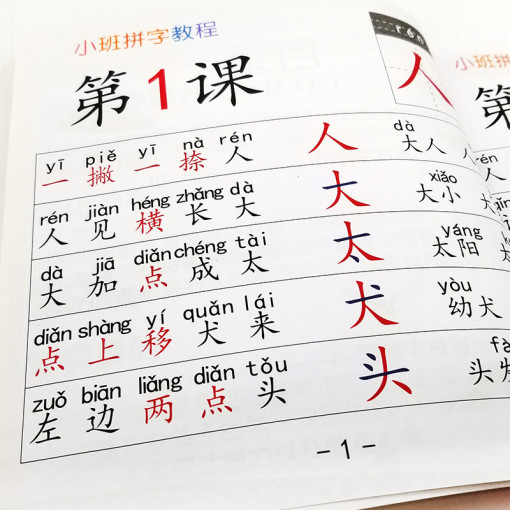 小班拼字教程
第1课
rén
人
yī piě yī nà rén 人 dà
一 撇 一 捺 人 大人 人
rén jiàn héng zhǎng dà 大 xiǎo
人 见 横 长 大 大小
dà jiā diǎn chéng tài 太 yáng
大 加 点 成 太 太阳
diǎn shàng yí quǎn lái 犬 yòu
点 上 移 犬 来 幼犬
zuǒ biān liǎng diǎn tǒu 头
左 边 两 点 头 头发
- 1 -
小班拼
第
rén